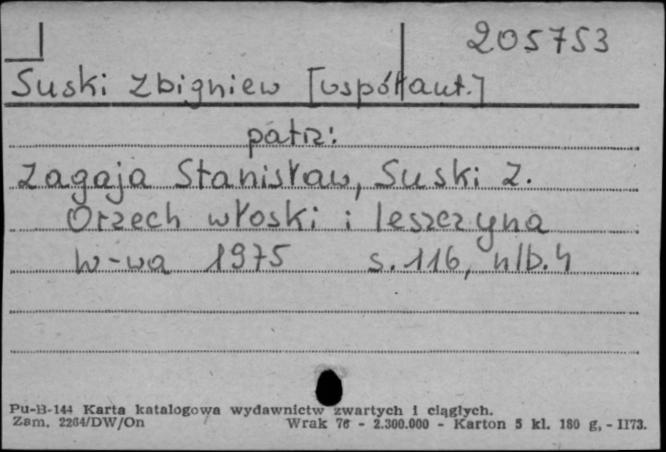 205753
Suski Zbigniew [współaut.]
patrz:
Zagaja Stanisław, Suski Z.
Orzech włoski i leszczyna
W-wa 1975 s. 116, nlb. 4
Pu-B-144 Karta katalogowa wydawnictw zwartych i ciągłych.
Zam. 2264/DW/On Wrak 76 - 2.300.000 - Karton 5 kl. 180 g. - II73.